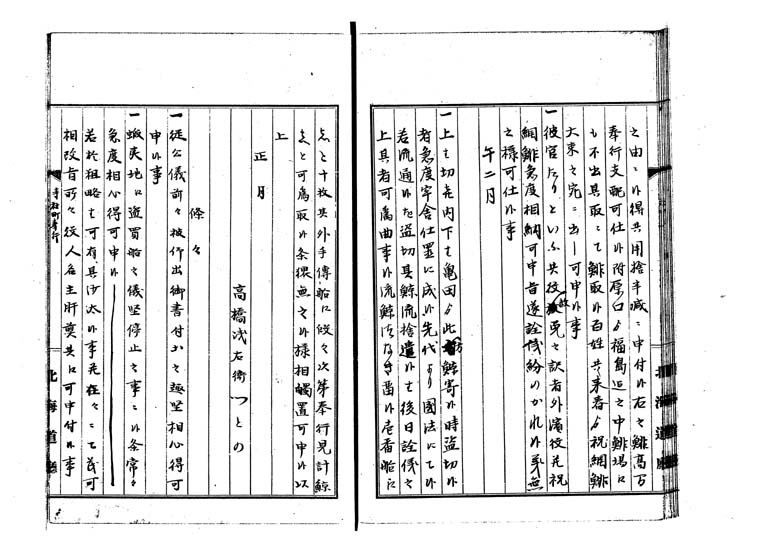 之由ニ候得共用捨半減ニ申付候右之鯡高万
奉行支配可仕候附原口ゟ福島迄之中鯡場江
も不出其取ニて鯡取候百姓共来春ゟ祝網鯡
大束之宛ニ出し可申候事
一彼官たりといふ共役赦免之訳者外濱役並祝
網鯡急度相納可申旨遂詮儀紛のかれ候義無
之様可仕候事
午二月
一上之切左内下も亀田ゟ此方鯨寄候時盗切候
者急度牢舎仕置に成候先代より国法にて候
若流通候を盗切其鯨流捨遣候も後日詮儀之
上其者可為曲事候流鯨
糺之十枚其外手傳船江段々次第奉行見計鯨
可為取候条猥無之候様相触置可申候以
上
正月
高橋浅右衛つとの
條々
一従公儀前々被仰出御書付之趣堅相心得可
申候事
一蝦夷地江盗買船之儀堅停止之事ニ候条常々
急度相心得可申候
若於粗略も可有其沙汰候事先在々ニても茂可
相改旨所々役人名主肝煎共江可申付候事
寺社町奉行
北海道廳
北海道廳